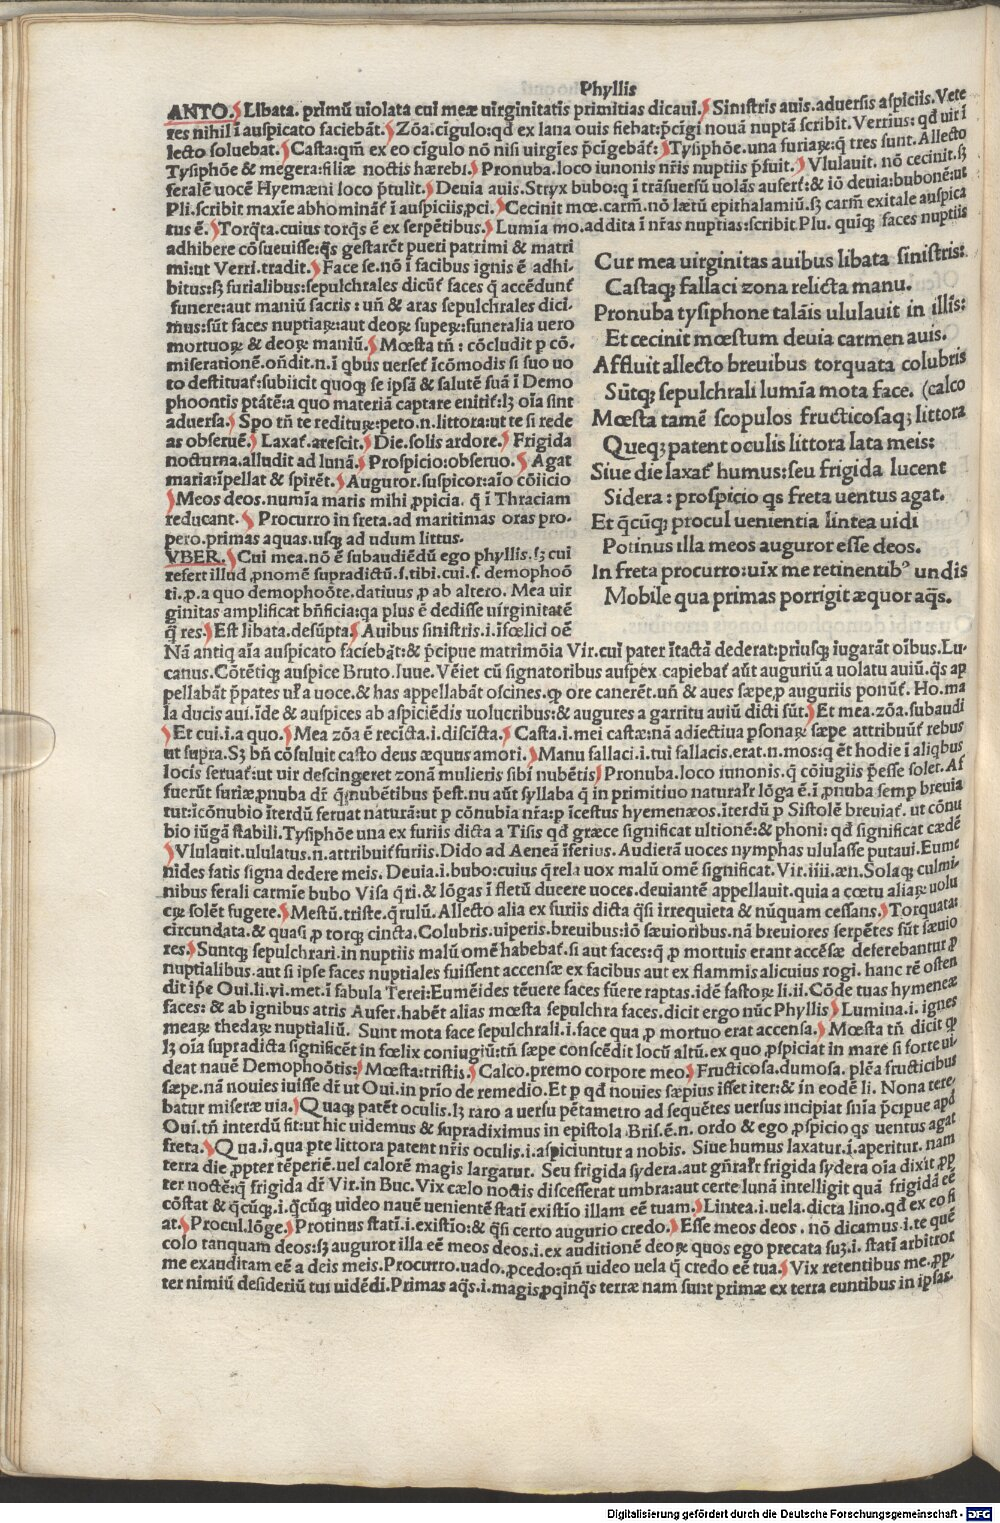 Phyllis
ANTO. Libata. primũ uiolata cui meæ uirginitatis primitias dicaui. Sinistris auis. aduersis aspiciis. Vete
res nihil ĩ auspicato faciebãt. Zõa. cĩgulo: qđ ex lana ouis fiebat: p̄cĩgi nouã nuptã scribit. Verrius: qđ uir ĩ
lecto soluebat. Casta: qm̃ ex eo cĩgulo nõ nisi uirgĩes p̄cĩgebãt᷑: Tysiphõe. una furiaꝝ: q̃ tres sunt. Allecto
Tysiphõe & megera: filiæ noctis hærebi. Pronuba. loco iunonis nr̃is nuptiis p̄fuit. Vlulauit. nõ cecinit. sꝫ
feralẽ uocẽ Hyemæni loco p̄tulit. Deuia auis. Stryx bubo: q ĩ trãsuersũ uolãs aufert᷑: & iõ deuia: bubonẽ: ut
Pli. scribit maxĩe abhominãt᷑ ĩ auspiciis ꝓci. Cecinit mœ. carm̃. nõ lætũ epithalamiũ. sꝫ carm̃ exitale auspica
tus ẽ. Torq̃ta. cuius torq̃s ẽ ex serpẽtibus. Lumĩa mo. addita ĩ nr̃as nuptias: scribit Plu. quĩqꝫ faces nuptiis
adhibere cõsueuisse: q̃s gestarẽt pueri patrimi & matri
mi: ut Verri. tradit. Face se. nõ ĩ facibus ignis ẽ adhi-
bitus: sꝫ furialibus: sepulchrales dicũt᷑ faces q̃ accẽdunt᷑
funere: aut maniũ sacris: uñ & aras sepulchrales dici-
mus: sũt faces nuptiaꝝ: aut deoꝝ supeꝝ: funeralia uero
mortuoꝝ & deoꝝ maniũ. Mœsta tñ: cõcludit p cõ.
miserationẽ. oñdit. n. ĩ qbus uerset᷑ ĩcõmodis si suo uo
to destituat᷑: subiicit quoqꝫ se ipsã & salutẽ suã ĩ Demo
phoontis ptãtẽ: a quo materiã captare enitit᷑: lꝫ oĩa sint
aduersa. Spo tñ te redituꝝ: peto. n. littora: ut te si rede
as obseruẽ. Laxat᷑. arescit. Die. solis ardore. Frigida
nocturna. alludit ad lunã. Prospicio: obseruo. Agat
maria: ĩpellat & spirẽt. Auguror. suspicor: aĩo cõiicio
Meos deos. numĩa maris mihi ꝓpicia. q̃ ĩ Thraciam
reducant. Procurro in freta. ad maritimas oras pro-
pero. primas aquas. usqꝫ ad udum littus.
VBER. Cui mea. nõ ẽ subaudiẽdũ ego phyllis. sꝫ cui
refert illud ꝓnomẽ supradictũ. s. tibi. cui. s. demophoõ
ti. p. a quo demophoõte. datiuus p ab altero. Mea uir
ginitas amplificat bñficia: qa plus ẽ dedisse uirginitatẽ
q̃ res. Est libata. desũpta. Auibus sinistris. i. ĩfœlici oẽ
Cur mea uirginitas auibus libata sinistris:
Castaqꝫ fallaci zona relicta manu.
Pronuba tysiphone talãis ululauit in illis:
Et cecinit mœstum deuia carmen auis.
Affluit allecto breuibus torquata colubris
Sũtqꝫ sepulchrali lumĩa mota face. (calco
Mœsta tamẽ scopulos fructicosaqꝫ littora
Queqꝫ patent oculis littora lata meis:
Siue die laxat᷑ humus: seu frigida lucent
Sidera: prospicio qs freta uentus agat.
Et q̃cũqꝫ procul uenientia lintea uidi
Potinus illa meos auguror esse deos.
In freta procurro: uix me retinentibꝰ undis
Mobile qua primas porrigit æquor aq̃s.
Nã antiq aĩa auspicato faciebãt: & p̄cipue matrimõia Vir. cui pater ĩtactã dederat: priusqꝫ iugarãt oĩbus. Lu-
canus. Cõtẽtiqꝫ auspice Bruto. Iuue. Vẽiet cũ signatoribus auspex capiebat᷑ aut auguriũ a uolatu auiũ. q̃s ap
pellabãt p̄pates ul᷑a uoce. & has appellabãt oscines. ꝙ ore canerẽt. uñ & aues sæpe ꝓ auguriis ponũt᷑. Ho. ma
la ducis aui. ĩde & auspices ab aspiciẽdis uolucribus: & augures a garritu auiũ dicti sũt. Et mea. zõa. subaudi
Et cui. i. a quo. Mea zõa ẽ recicta. i. discĩcta. Casta. i. mei castæ: nã adiectiua psonaꝝ sæpe attribuũt᷑ rebus
ut supra. Sꝫ bñ cõsuluit casto deus æquus amori. Manu fallaci. i. tui fallacis. erat. n. mos: q ẽt hodie ĩ aliqbus
locis seruat᷑: ut uir descingeret zonã mulieris sibi nubẽtis. Pronuba. loco iunonis. q̃ cõiugiis p̄esse solet. Af
fuerũt furiæ ꝓnuba dr̃ q̃ nubẽtibus p̄est. nu aũt syllaba q̃ in primitiuo natural᷑r lõga ẽ. ĩ ꝓnuba semp breuia
tur: ĩcõnubio ĩterdũ seruat naturã: ut p cõnubia nr̃a: p ĩcestus hyemenæos. ĩterdũ p Sistolẽ breuiat᷑. ut cõnu
bio iũgã stabili. Tysiphõe una ex furiis dicta a Tisis qđ græce significat ultionẽ: & phoni: qđ significat cædẽ
Vlulauit. ululatus. n. attribuit᷑ furiis. Dido ad Aeneã ĩferius. Audierã uoces nymphas ululasse putaui. Eume
nides fatis signa dedere meis. Deuia. i. bubo: cuius q̃rela uox malũ omẽ significat. Vir. iiii. æn. Solaqꝫ culmi-
nibus ferali carmĩe bubo Visa q̃ri. & lõgas ĩ fletũ ducere uoces. deuiantẽ appellauit. quia a cœtu aliaꝝ uolu
crꝝ solẽt fugere. Mestũ. triste. q̃rulũ. Allecto alia ex furiis dicta q̃si irrequieta & nũquam cessans. Torquata:
circundata. & quasi ꝓ torqꝫ cincta. Colubris. uiperis. breuibus: iõ sæuioribus. nã breuiores serpẽtes sũt sæuio
res. Suntqꝫ sepulchrari. in nuptiis malũ omẽ habebat᷑. si aut faces: q̃ ꝓ mortuis erant accẽsæ deferebantur ꝓ
nuptialibus. aut si ipse faces nuptiales fuissent accensæ ex facibus aut ex flammis alicuius rogi. hanc rẽ osten
dit ip̃e Oui. li. vi. met. ĩ fabula Terei: Eumẽides tẽuere faces fũere raptas. idẽ fastoꝝ li. ii. Cõde tuas hymeneæ
faces: & ab ignibus atris Aufer. habẽt alias mœsta sepulchra faces. dicit ergo nũc Phyllis Lumina. i. ignes
meaꝝ thedaꝝ nuptialiũ. Sunt mota face sepulchrali. i. face qua ꝓ mortuo erat accensa. Mœsta tñ dicit ꝙ
lꝫ oĩa supradicta significẽt in fœlix coniugiũ: tñ sæpe conscẽdit locũ altũ. ex quo ꝓspiciat in mare si forte ui-
deat nauẽ Demophoõtis: Mœsta: tristis. Calco. premo corpore meo. Fructicosa. dumosa. plẽa fructicibus
sæpe. nã nouies iuisse dr̃ ut Oui. in prĩo de remedio. Et p qđ nouies sæpius isset iter: & in eodẽ li. Nona tere-
batur miseræ uia. Quaqꝫ patẽt oculis. lꝫ raro a uersu pẽtametro ad sequẽtes uersus incipiat snĩa p̄cipue apđ
Oui. tñ interdũ fit: ut hic uidemus & supradiximus in epistola Bris. ẽ. n. ordo & ego ꝓspicio qs uentus agat
freta. Qua. i. qua pte littora patent nr̃is oculis. i. aspiciuntur a nobis. Siue humus laxatur. i. aperitur. nam
terra die ꝓpter tẽperiẽ. uel calorẽ magis largatur. Seu frigida sydera. aut gñral᷑r frigida sydera oĩa dixit ꝓp
ter noctẽ: q̃ frigida dr̃ Vir. in Buc. Vix cælo noctis discesserat umbra: aut certe lunã intelligit quã frigidã eẽ
cõstat & q̃cũqꝫ. i. q̃cũqꝫ uideo nauẽ uenientẽ statĩ existio illam eẽ tuam. Lintea. i. uela. dicta lino. qđ ex eo fi
at. Procul. lõge. Protinus statĩ. i. existĩo: & q̃si certo augurio credo. Esse meos deos. nõ dicamus. i. te quẽ
colo tanquam deos: sꝫ auguror illa eẽ meos deos. i. ex auditionẽ deoꝝ quos ego precata suꝫ. i. statĩ arbitror
me exauditam eẽ a deis meis. Procurro. uado. ꝓcedo: qñ uideo uela q̃ credo eẽ tua. Vix retentibus me. ꝓp-
ter nimiũ desideriũ tui uidẽdi. Primas aq̃s. i. magis ꝓpinq̃s terræ nam sunt primæ ex terra euntibus in ipsas.
Digitalisierung gefördert durch die Deutsche Forschungsgemeinschaft - DFG